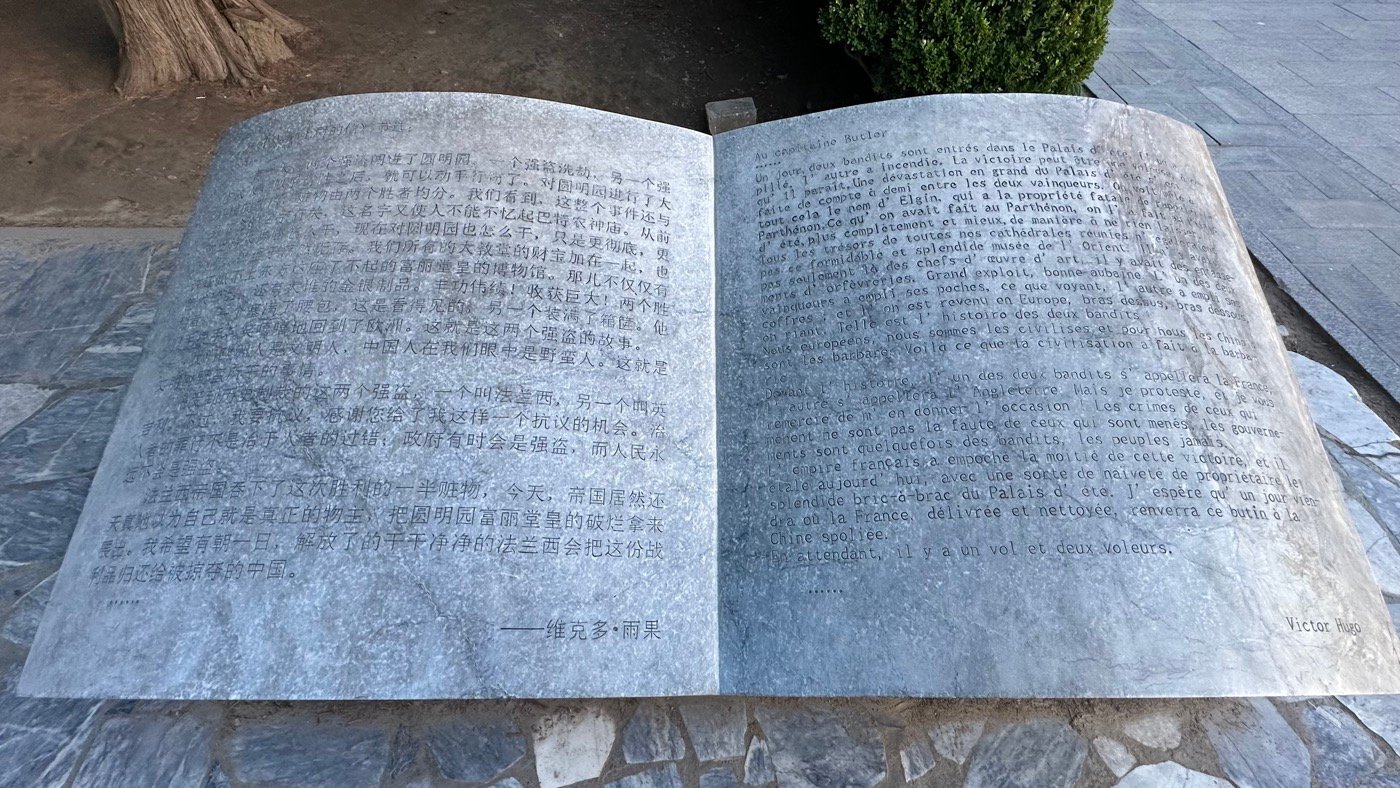 个强盗闯进了圆明园。一个强盗洗劫，另一个强
之后，就可以动手行窃了。对圆明园进行了大
由两个胜者均分。我们看到，这整个事件还与
这名字又使人不能不忆起巴特农神庙。从前
现在对圆明园也怎么干，只是更彻底，更
我们所有的大教堂的财宝加在一起，也
了不起的富丽堂皇的博物馆。那儿不仅仅有
金银制品。丰功伟绩！收获巨大！两个胜
腰包，这是看得见的，另一个装满了箱箧。他
地回到了欧洲。这就是这两个强盗的故事。
人是文明人，中国人在我们眼中是野蛮人。这就是
的事情。
的这两个强盗，一个叫法兰西，另一个叫英
不过，我要抗议，感谢您给了我这样一个抗议的机会。治
人者的罪行不是治于人者的过错；政府有时会是强盗，而人民永
远不会是强盗。
法兰西帝国吞下了这次胜利的一半赃物，今天，帝国居然还
天真地以为自己就是真正的物主，把圆明园富丽堂皇的破烂拿来
展出。我希望有朝一日，解放了的干干净净的法兰西会把这份战
利品归还给被掠夺的中国。
……
——维克多•雨果
Au capitaine Butler
......
Un jour, deux bandits sont entrés dans le Palais d' été.
pillé, l' autre a incendié. La victoire peut être
qu' il paraît. Une dévastation en grand du Palais d'
faite de compte à demi entre les deux vainqueurs. On voit
tout cela le nom d' Elgin, qui a la propriété fatale de
Parthénon. Ce qu' on avait fait au Parthénon, on l' a fait
d' été, plus complètement et mieux, de manière à ne rien laisser.
Tous les trésors de toutes nos cathédrales réunies n' égaleraient
pas ce formidable et splendide musée de l' Orient. Il y avait
pas seulement là des chefs d' œuvre d' art, il y avait des entasse-
ments d' orfèvreries. Grand exploit, bonne aubaine. L' un des deux
vainqueurs a empli ses poches, ce que voyant, l' autre a empli ses
coffres et l' on est revenu en Europe, bras dessus, bras dessous
en riant. Telle est l' histoire des deux bandits.
Nous européens, nous sommes les civilisés et pour nous les Chinois
sont les barbares. Voilà ce que la civilisation a fait à la barba-
rie.
Devant l' histoire, l' un des deux bandits s' appellera la France,
l' autre s' appellera l' Angleterre. Mais je proteste, et je vous
remercie de m' en donner l' occasion! Les crimes de ceux qui
mènent ne sont pas la faute de ceux qui sont menés, les gouverne-
ments sont quelquefois des bandits, les peuples jamais.
L' empire français a empoché la moitié de cette victoire, et il
étale aujourd' hui, avec une sorte de naïveté de propriétaire le
splendide bric-à-brac du Palais d' été. J' espère qu' un jour vien-
dra où la France, délivrée et nettoyée, renverra ce butin à la
Chine spoliée.
En attendant, il y a un vol et deux voleurs.
......
Victor Hugo